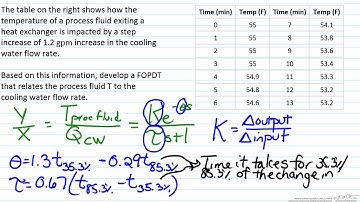 The table on the right shows how the
temperature of a process fluid exiting a
heat exchanger is impacted by a step
increase of 1.2 gpm increase in the cooling
water flow rate.
Based on this information, develop a FOPDT
that relates the process fluid T to the
cooling water flow rate.
Time (min) Temp (F) Time (min) Temp (F)
0 55 7 54.1
1 55 8 53.8
2 55 9 53.6
3 55 10 53.4
4 54.9 11 53.3
5 54.8 12 53.2
6 54.6 13 53.2
Y/X = T process fluid / Q CW = K e^-θs / τs+1
K = Δoutput / Δinput
θ = 1.3 t35.3% − 0.29 t85.3%
τ = 0.67 (t85.3% − t35.3%)
Time it takes for 35.3%/
85.3% of the change in